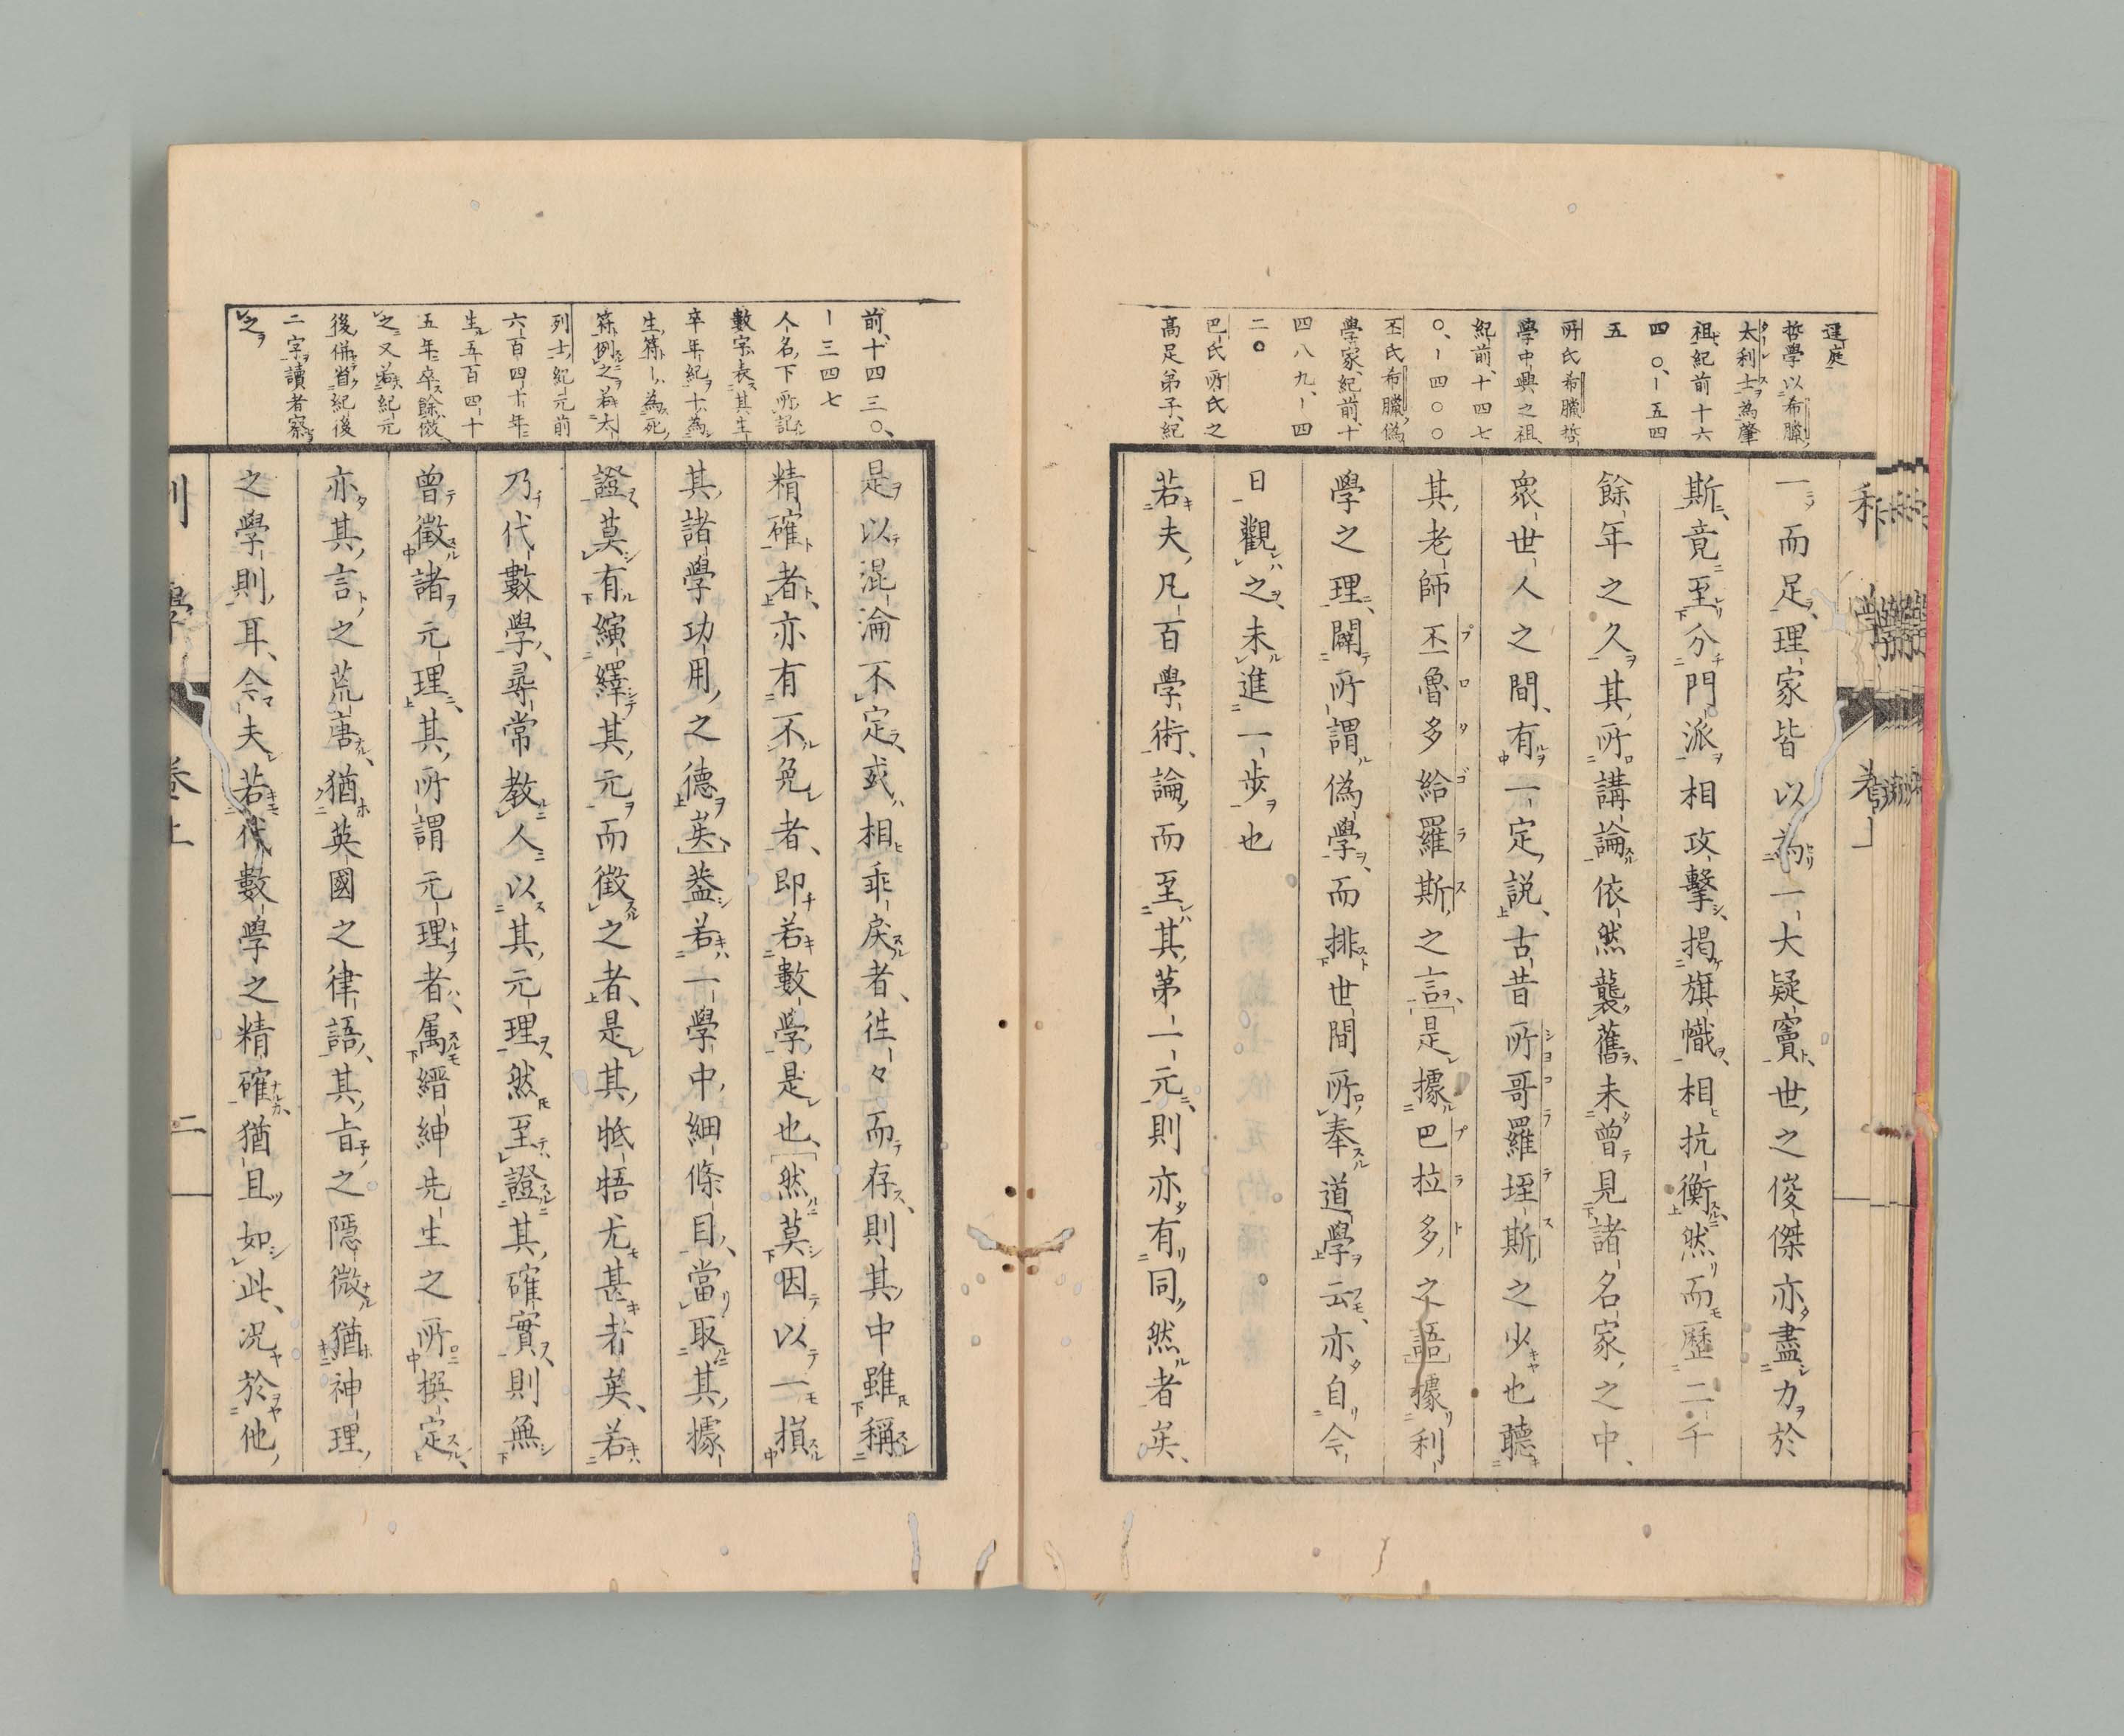 逕庭
哲學以希臘
太利士為肇
祖、紀前十六
四〇、ー五四
五
所氏希臘哲
學中興之祖
紀前、十四七
〇、ー四〇〇
丕氏希臘偽
學家、紀前、十
四八九、ー四
二〇
巴氏所氏之
高足弟子、紀
一而足、理家皆以為一大疑竇、世之俊傑亦盡力於
斯、竟至分門派相攻擊、揭旗幟、相抗衡、然而歷二千
餘年之久、其所講論依然襲舊、未曾見諸名家之中、
衆世人之間、有一定說、古昔所哥羅垤斯之少也聽
其老師丕魯多給羅斯之言、是據巴拉多之語據利
學之理、闢所謂偽學、而排世間所奉道學云、亦自今
日觀之、未進一步也
若夫凡百學術論而至其第一元、則亦有同然者矣、
前、十四三〇、
ー三四七
人名下所記
數字表其生
卒年紀十為
生符ー為死
符例之若太
列士、紀元前
六百四十年
生五百四十
五年卒餘倣
之又若紀元
後併省紀後
二字讀者察
之
是以混淪不定、或相乖戾者、往々而存、則其中雖稱
精確者、亦有不免者、即若數學是也、然莫因以一損
其諸學功用之德矣、蓋若一學中細條目、當取其據
證莫有縯繹其元而徵之者、是其牴牾尤甚者矣、若
乃代數學、尋常教人以其元理、然至證其確實、則無
曾徵諸元理、其所謂元理者、属縉紳先生之所撰定、
亦其言之荒唐、猶英國之律語、其旨之隱微猶神理
之學則耳、今夫若代數學之精確猶且如此、況於他
利學 卷上 二